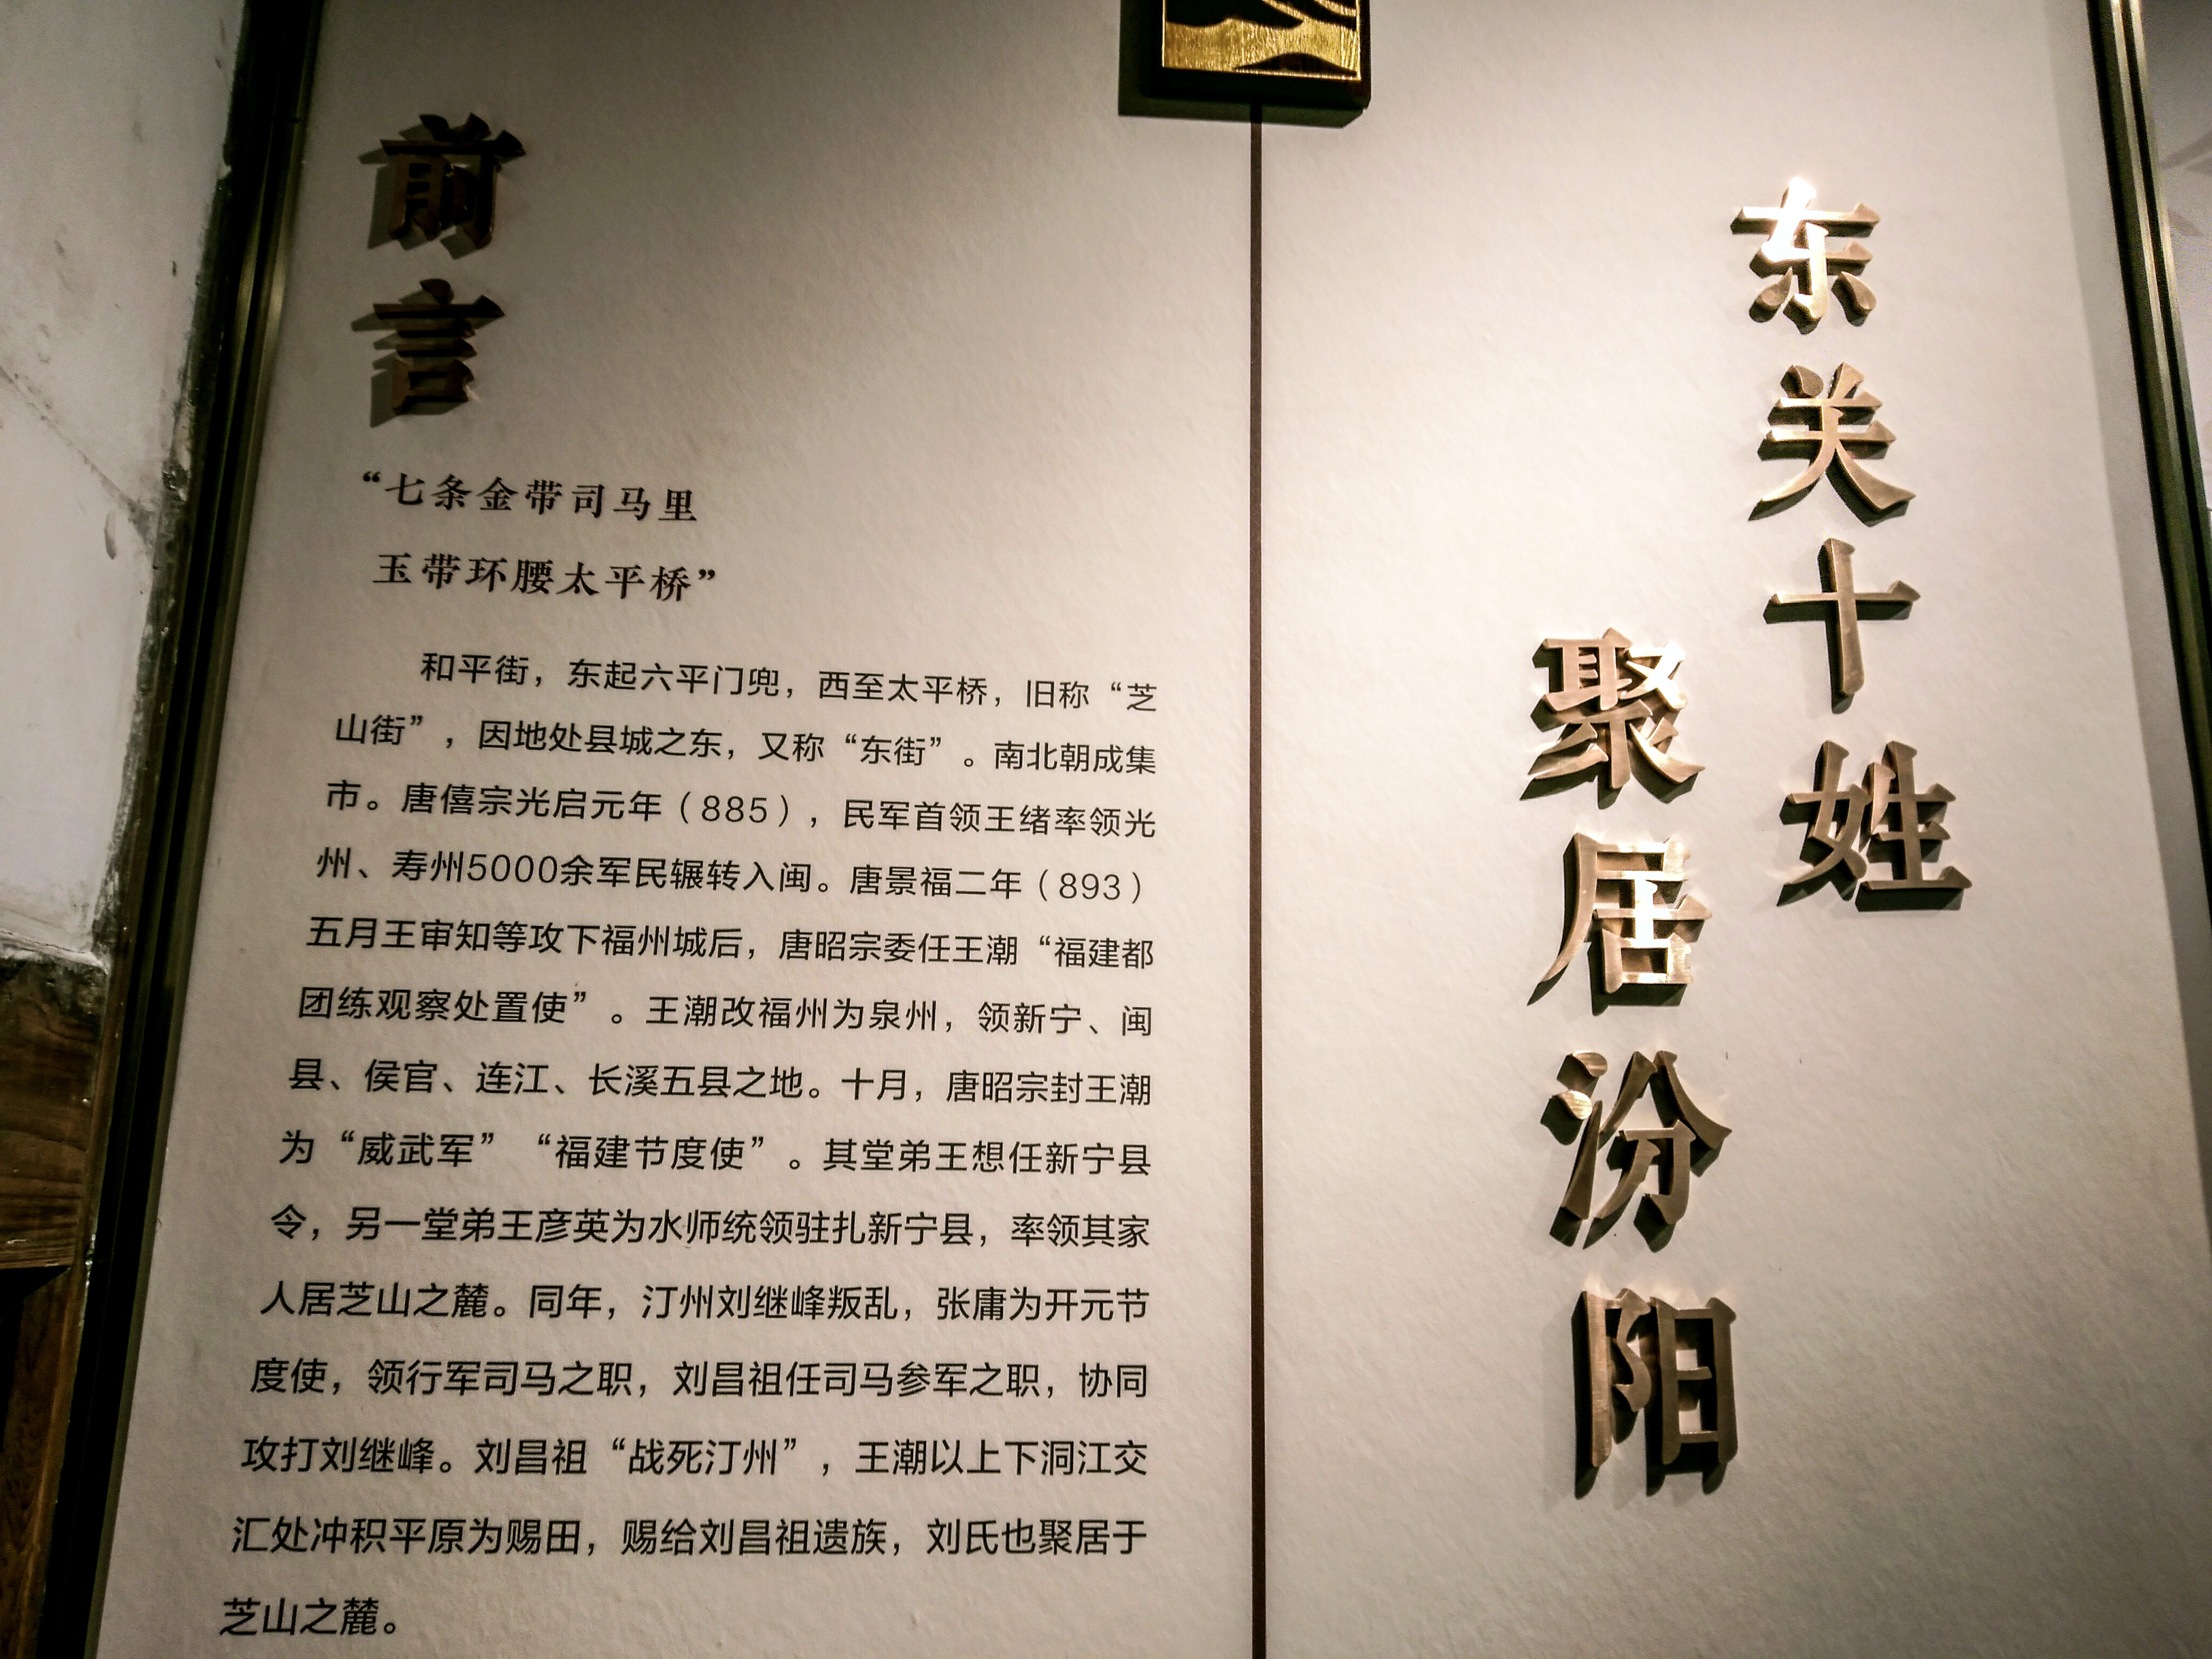 东关十姓
聚居汾阳
前言
“七条金带司马里
玉带环腰太平桥”
和平街，东起六平门兜，西至太平桥，旧称“芝
山街”，因地处县城之东，又称“东街”。南北朝成集
市。唐僖宗光启元年（885），民军首领王绪率领光
州、寿州5000余军民辗转入闽。唐景福二年（893）
五月王审知等攻下福州城后，唐昭宗委任王潮“福建都
团练观察处置使”。王潮改福州为泉州，领新宁、闽
县、侯官、连江、长溪五县之地。十月，唐昭宗封王潮
为“威武军”“福建节度使”。其堂弟王想任新宁县
令，另一堂弟王彦英为水师统领驻扎新宁县，率领其家
人居芝山之麓。同年，汀州刘继峰叛乱，张庸为开元节
度使，领行军司马之职，刘昌祖任司马参军之职，协同
攻打刘继峰。刘昌祖“战死汀州”，王潮以上下洞江交
汇处冲积平原为赐田，赐给刘昌祖遗族，刘氏也聚居于
芝山之麓。